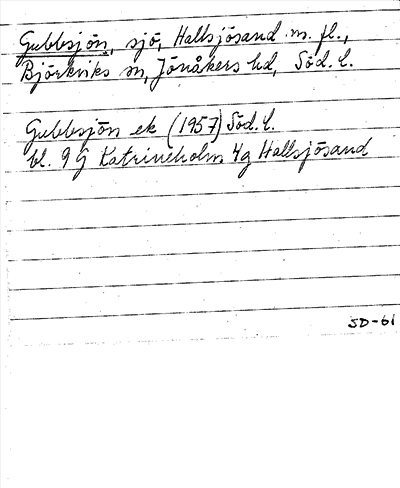 Gubbsjön, sjö, Hallsjösand m. fl.,
Björkviks sn, Jönåkers hd, Söd. l.
Gubbsjön ek (1957) Söd. l.
bl. 9 G Katrineholm 4g Hallsjösand
SD-61